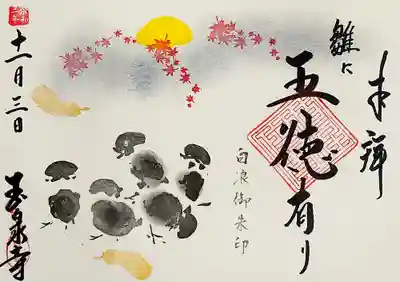 奉拝
雛に
五徳有り
白浪御朱印
十一月三日
玉泉寺